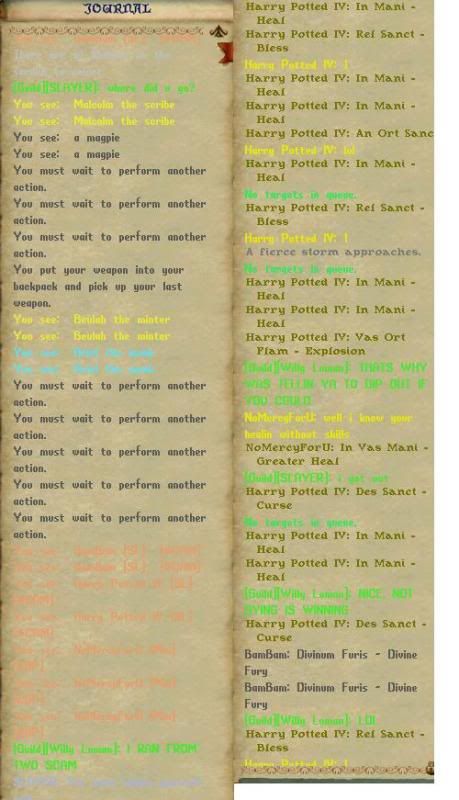 JOURNAL
[Guild][SLAYER]: where did u go?
You see: Malcolm the scribe
You see: Malcolm the scribe
You see: a magpie
You see: a magpie
You must wait to perform another
action.
You must wait to perform another
action.
You must wait to perform another
action.
You put your weapon into your
backpack and pick up your last
weapon.
You see: Beulah the minter
You see: Beulah the minter
You see:
You see:
You must wait to perform another
action.
You must wait to perform another
action.
You must wait to perform another
action.
You must wait to perform another
action.
You must wait to perform another
action.
You see: BamBam [SL]
You see: BamBam [SL]
You see: Harry Potted IV [SL]
You see: Harry Potted IV [SL]
You see: NoMercyForU
You see: NoMercyForU
You see: NoMercyForU
[Guild][Willy Loman]: I RAN FROM
TWO SCAM
Harry Potted IV: In Mani -
Heal
Harry Potted IV: Rel Sanct -
Bless
Harry Potted IV: !
Harry Potted IV: In Mani -
Heal
Harry Potted IV: In Mani -
Heal
Harry Potted IV: An Ort Sanc
Harry Potted IV: lol
Harry Potted IV: In Mani -
Heal
No targets in queue.
Harry Potted IV: Rel Sanct -
Bless
Harry Potted IV: !
A fierce storm approaches.
No targets in queue.
Harry Potted IV: In Mani -
Heal
Harry Potted IV: In Mani -
Heal
Harry Potted IV: Vas Ort
Flam - Explosion
[Guild][Willy Loman]: THATS WHY
WAS TELLIN YA TO DIP OUT IF
YOU COULD
NoMercyForU: well i know your
healin without skills
NoMercyForU: In Vas Mani -
Greater Heal
[Guild][SLAYER]: i got out
Harry Potted IV: Des Sanct -
Curse
No targets in queue.
Harry Potted IV: In Mani -
Heal
Harry Potted IV: In Mani -
Heal
[Guild][Willy Loman]: NICE, NOT
DYING IS WINNING
Harry Potted IV: Des Sanct -
Curse
BamBam: Divinum Furis - Divine
Fury
BamBam: Divinum Furis - Divine
Fury
[Guild][Willy Loman]: LOL
Harry Potted IV: Rel Sanct -
Bless
Harry Potted IV: !